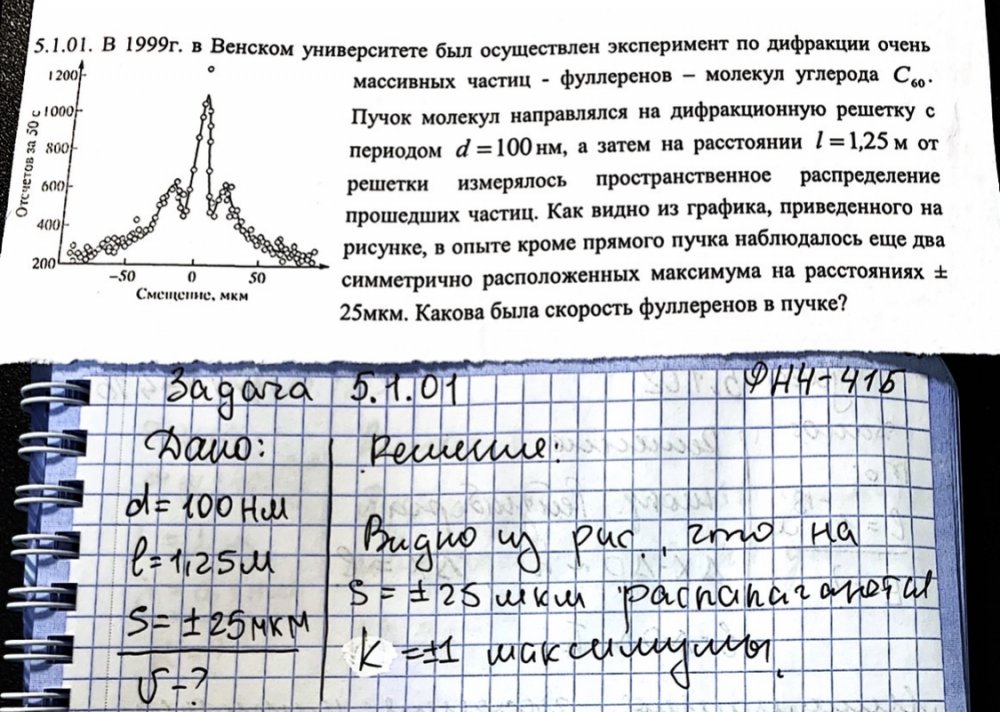 5.1.01. В 1999г. в Венском университете был осуществлен эксперимент по дифракции очень
массивных частиц - фуллеренов – молекул углерода C₆₀.
Пучок молекул направлялся на дифракционную решетку с
периодом d = 100 нм, а затем на расстоянии l = 1,25 м от
решетки измерялось пространственное распределение
прошедших частиц. Как видно из графика, приведенного на
рисунке, в опыте кроме прямого пучка наблюдалось еще два
симметрично расположенных максимума на расстояниях ±
25мкм. Какова была скорость фуллеренов в пучке?
Отсчетов за 50 с
1200
1000
800
600
400
200
−50 0 50
Смещение, мкм
Задача 5.1.01 ФН4-41Б
Дано:
d = 100 нм
l = 1,25 м
S = ±25 мкм
υ - ?
Решение:
Видно из рис., что на
S = ±25 мкм распалагаются
k = ±1 максимумы.